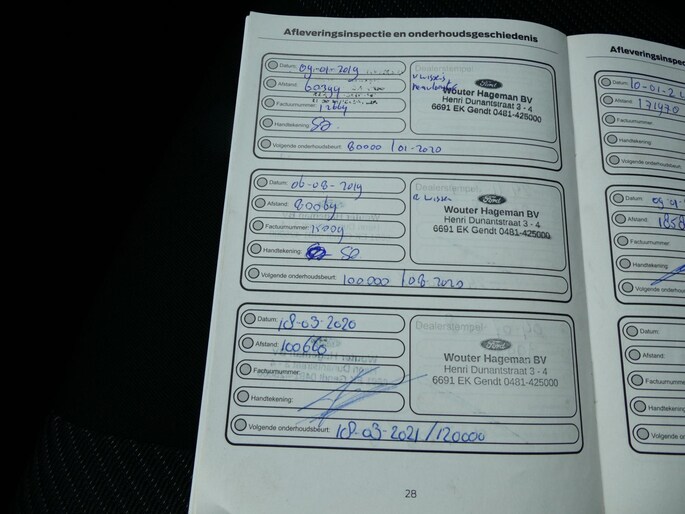 Afleveringsinspectie en onderhoudsgeschiedenis
Datum: 09-01-2019
Afstand: 60344
Factuurnummer: 12664
Handtekening:
Volgende onderhoudsbeurt: 80000 / 01-2020
Dealerstempel:
Ford
Wouter Hageman BV
Henri Dunantstraat 3 - 4
6691 EK Gendt 0481-425000
Datum: 06-08-2019
Afstand: 80069
Factuurnummer: 15009
Handtekening:
Volgende onderhoudsbeurt: 100000 / 08-2020
Dealerstempel:
Ford
Wouter Hageman BV
Henri Dunantstraat 3 - 4
6691 EK Gendt 0481-425000
Datum: 18-03-2020
Afstand: 100666
Factuurnummer:
Handtekening:
Volgende onderhoudsbeurt: 18-03-2021 / 120000
Dealerstempel:
Ford
Wouter Hageman BV
Henri Dunantstraat 3 - 4
6691 EK Gendt 0481-425000
28
Datum:
Afstand: 171470
Factuurnummer:
Handtekening:
Volgende onderhoudsbeurt:
Datum:
Afstand:
Factuurnummer:
Handtekening:
Volgende onderhoudsbeurt:
Datum:
Afstand:
Factuurnummer:
Handtekening:
Volgende